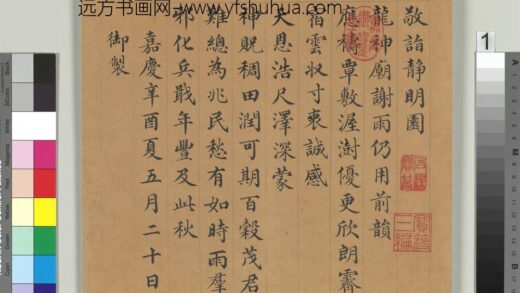 远方书画网-www.yfshuhua.com
敬詣静明園
龍神廟謝雨仍用前韻
應禱覃敷渥澍優更欣朗霽
宿雲收寸衷誠感
天恩浩尺澤深蒙
神貺稠田潤可期百穀茂君
難總為兆民愁有如時雨羣
邪化兵戢年豐及此秋
嘉慶辛酉夏五月二十日
御製
1